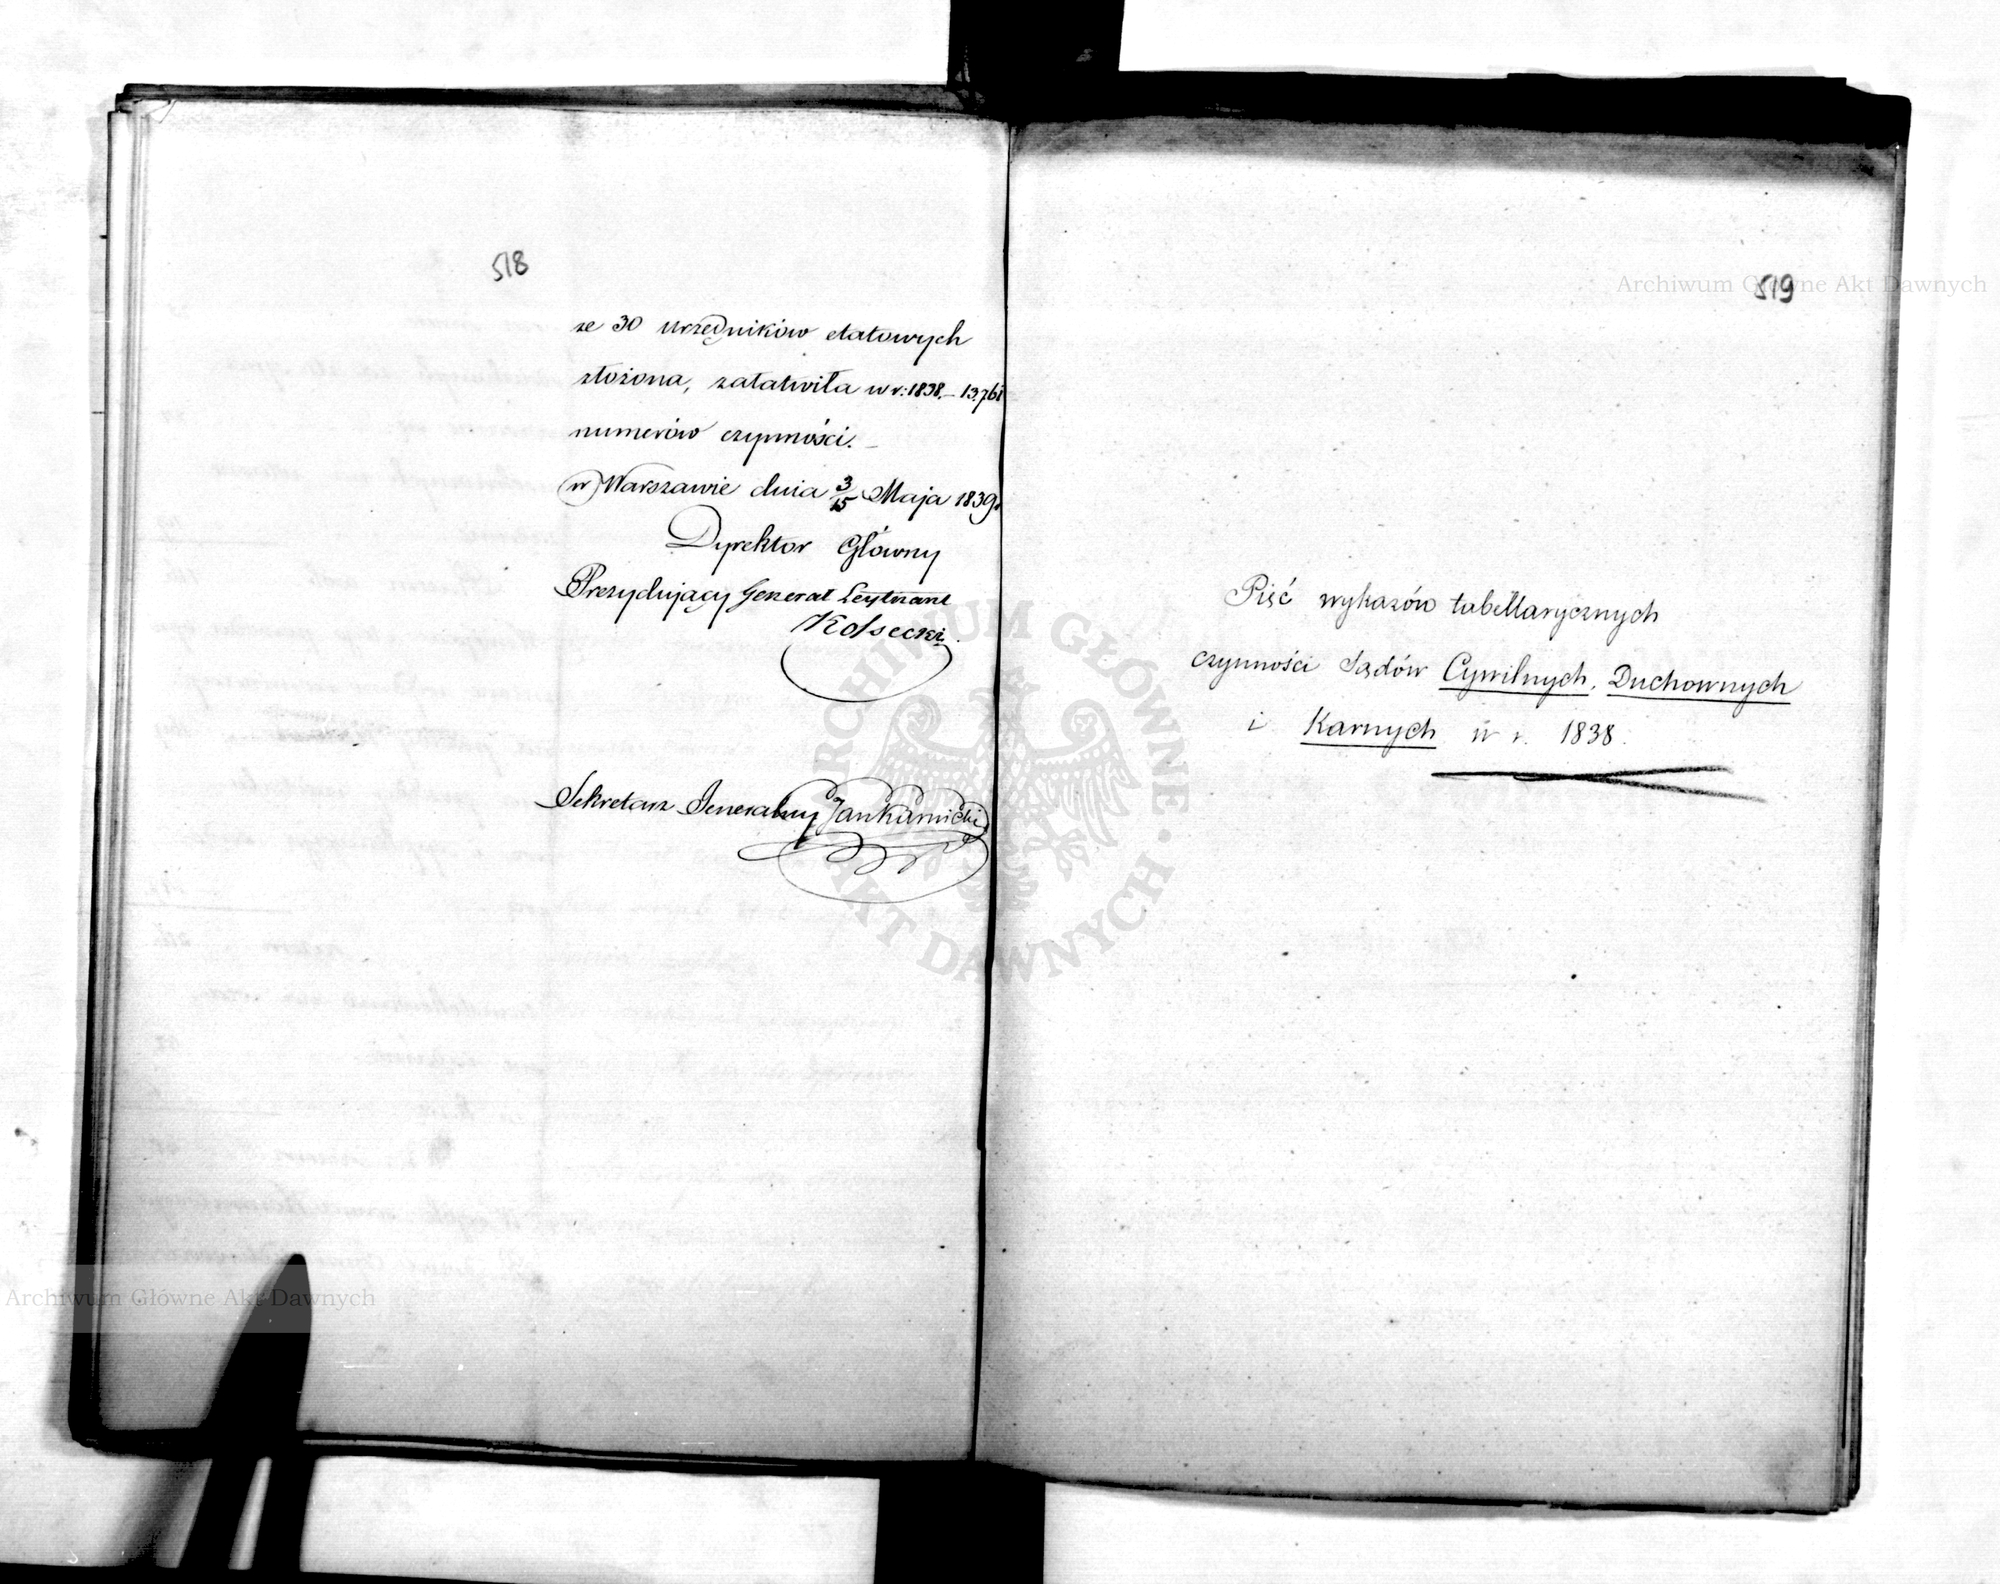 518
ze 30 urzędników etatowych
złożona, załatwiła w r: 1838. – 13.761
numerów czynności. –
w Warszawie dnia 3/15 Maja 1839r
Dyrektor Główny
Prezydujący Generał Leytnant
Sekretarz Jeneralny
519
Pięć wykazów tabellarycznych
czynności Sądów Cywilnych, Duchownych
i Karnych w r. 1838.
Archiwum Główne Akt Dawnych
ARCHIWUM GŁÓWNE AKT DAWNYCH
Archiwum Główne Akt Dawnych